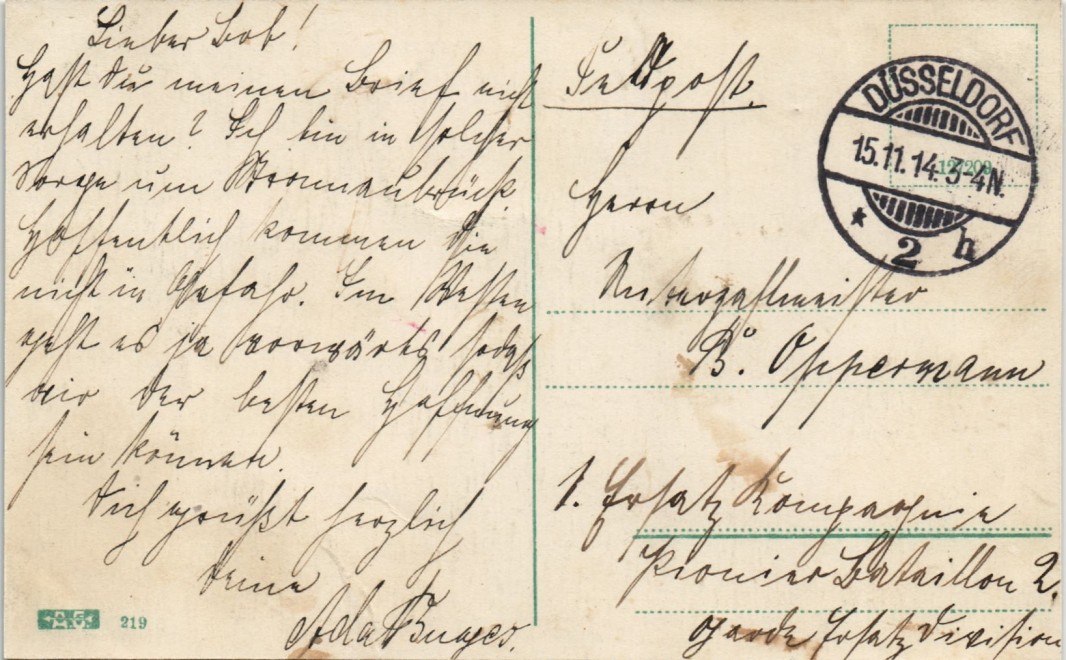 Lieber Bob!
Hast du meinen Brief nicht
erhalten? Ich bin in solcher
Sorge um
Hoffentlich kommen die
nicht in Gefahr. Im Westen
geht es ja vorwärts sodaß
wir der besten Hoffnung
sein können.
Dich grüßt herzlich
deine
Ada
219
Feldpost.
DÜSSELDORF
15.11.14. 3-4N.
* 2 h
Herrn
Unterzahlmeister
B. Oppermann
1. Ersatz Kompagnie
Pionier Bataillon 2.
Garde Ersatz Division